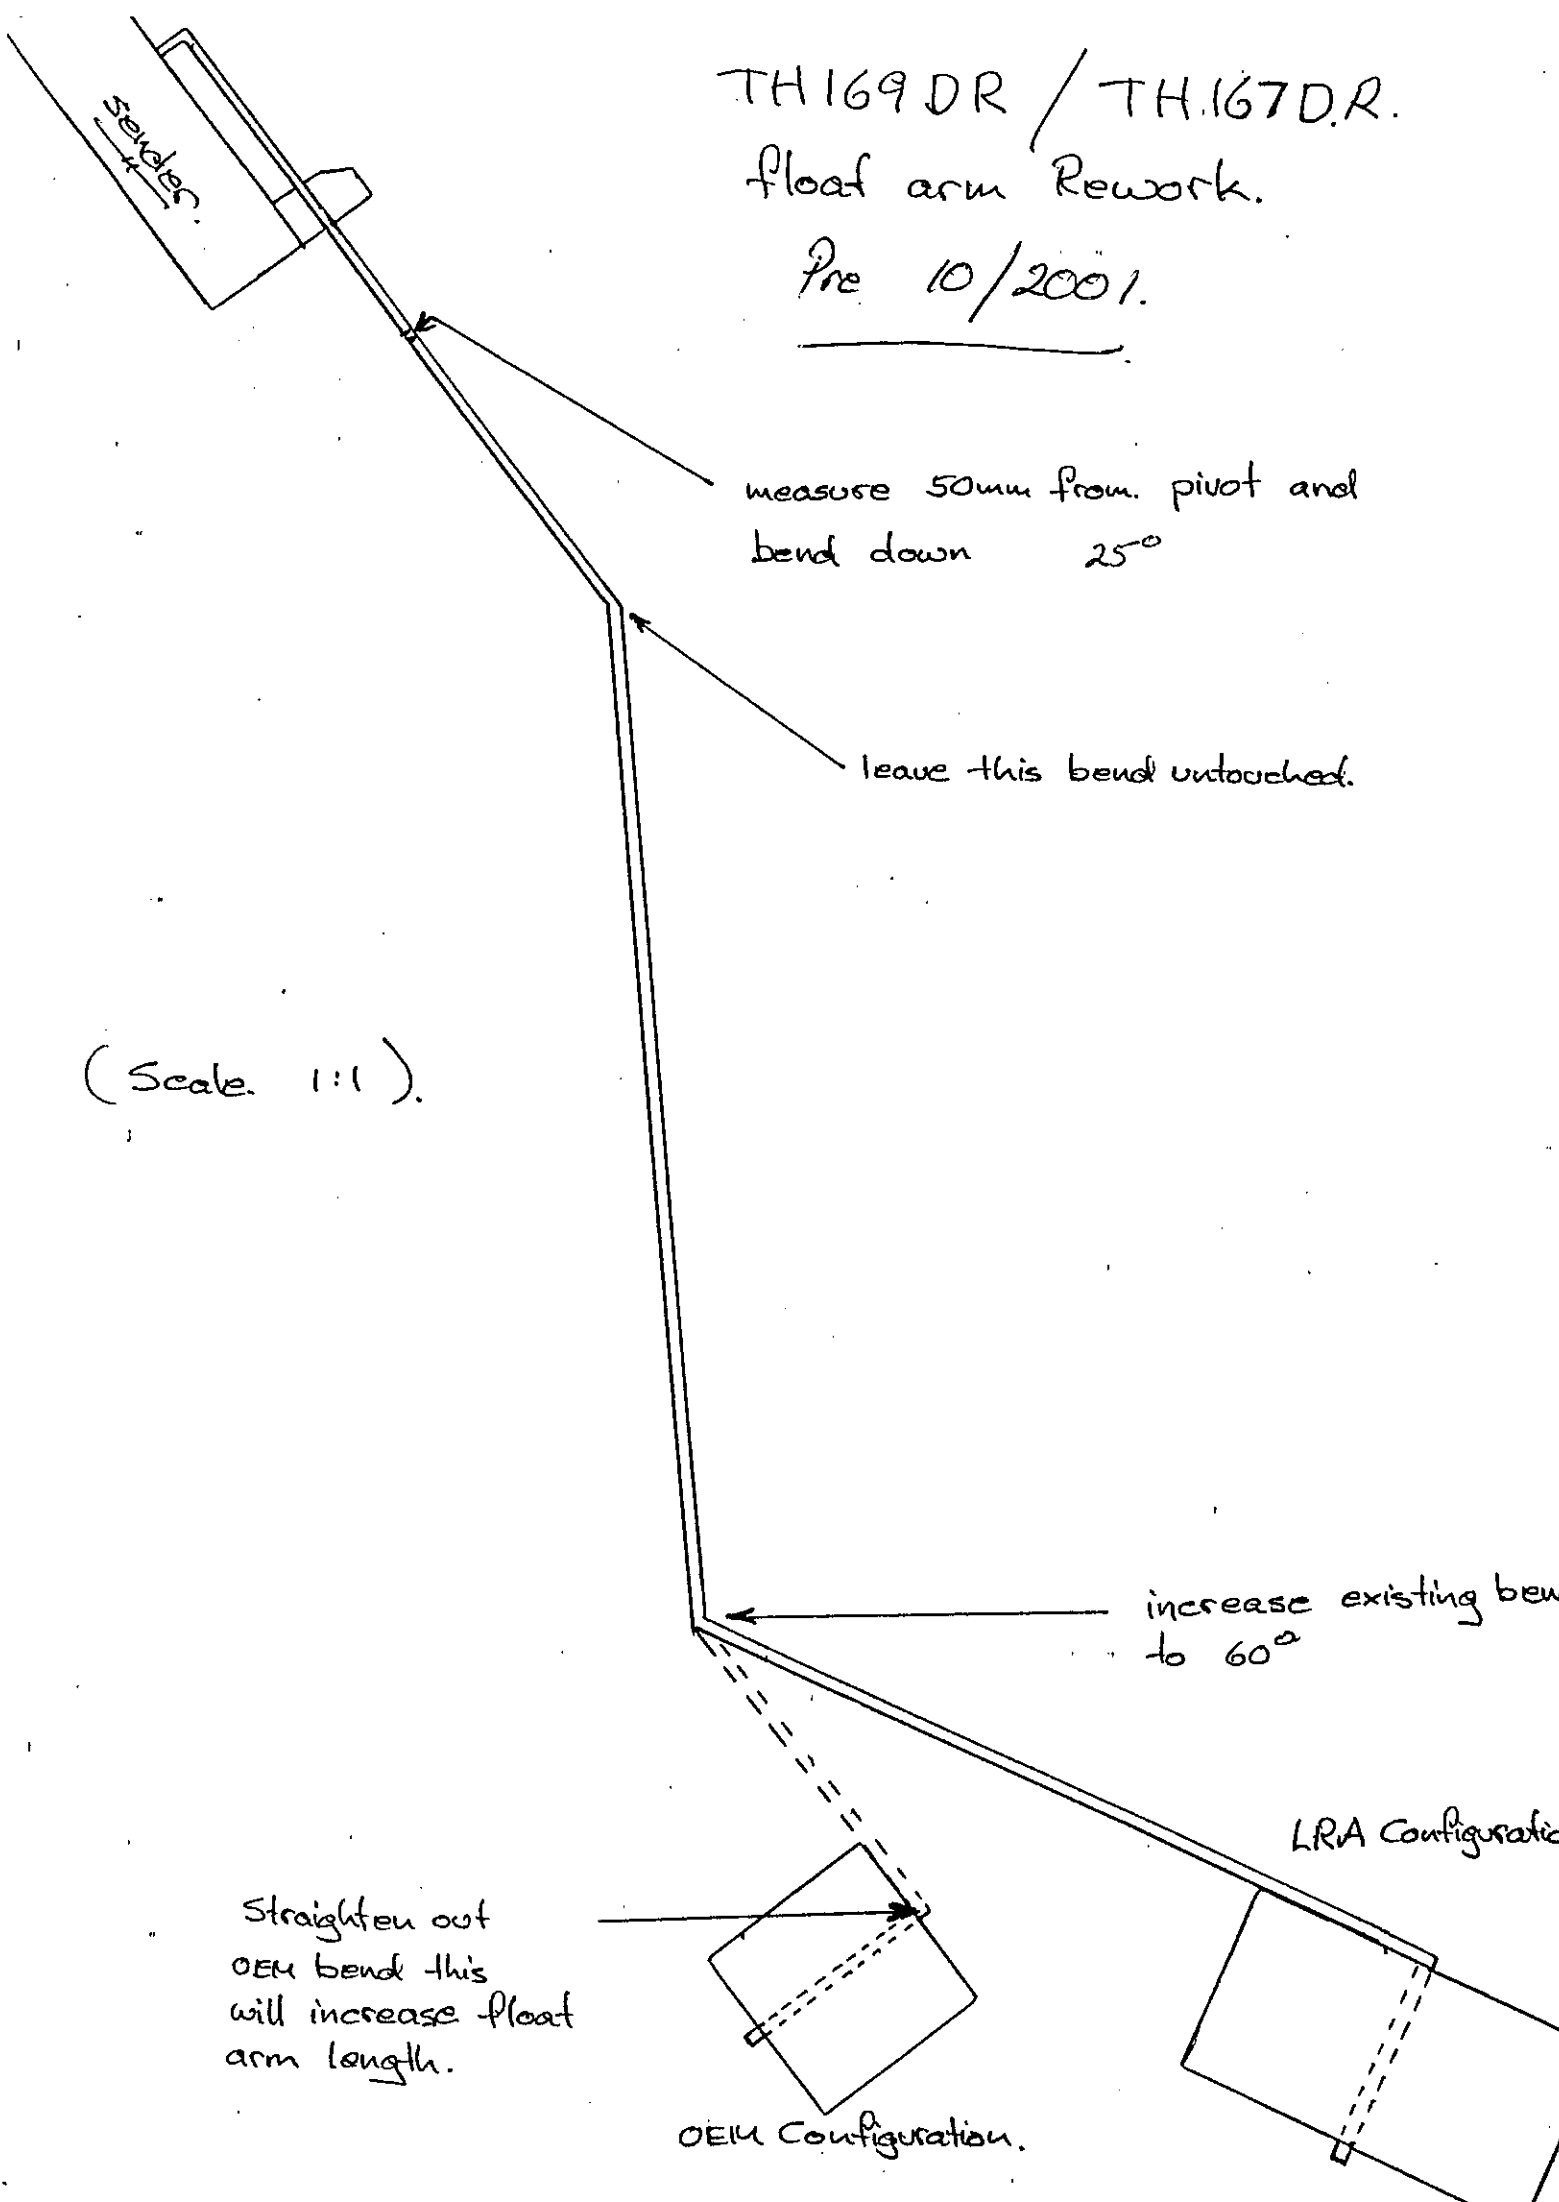 TH169DR / TH.167D.R.
float arm Rework.
Pre 10/2001.
sender.
measure 50mm from. pivot and
bend down 25°
leave this bend untouched.
(Scale. 1:1).
increase existing ben
to 60°
LRA Configuratio
Straighten out
OEM bend this
will increase float
arm length.
OEM Configuration.